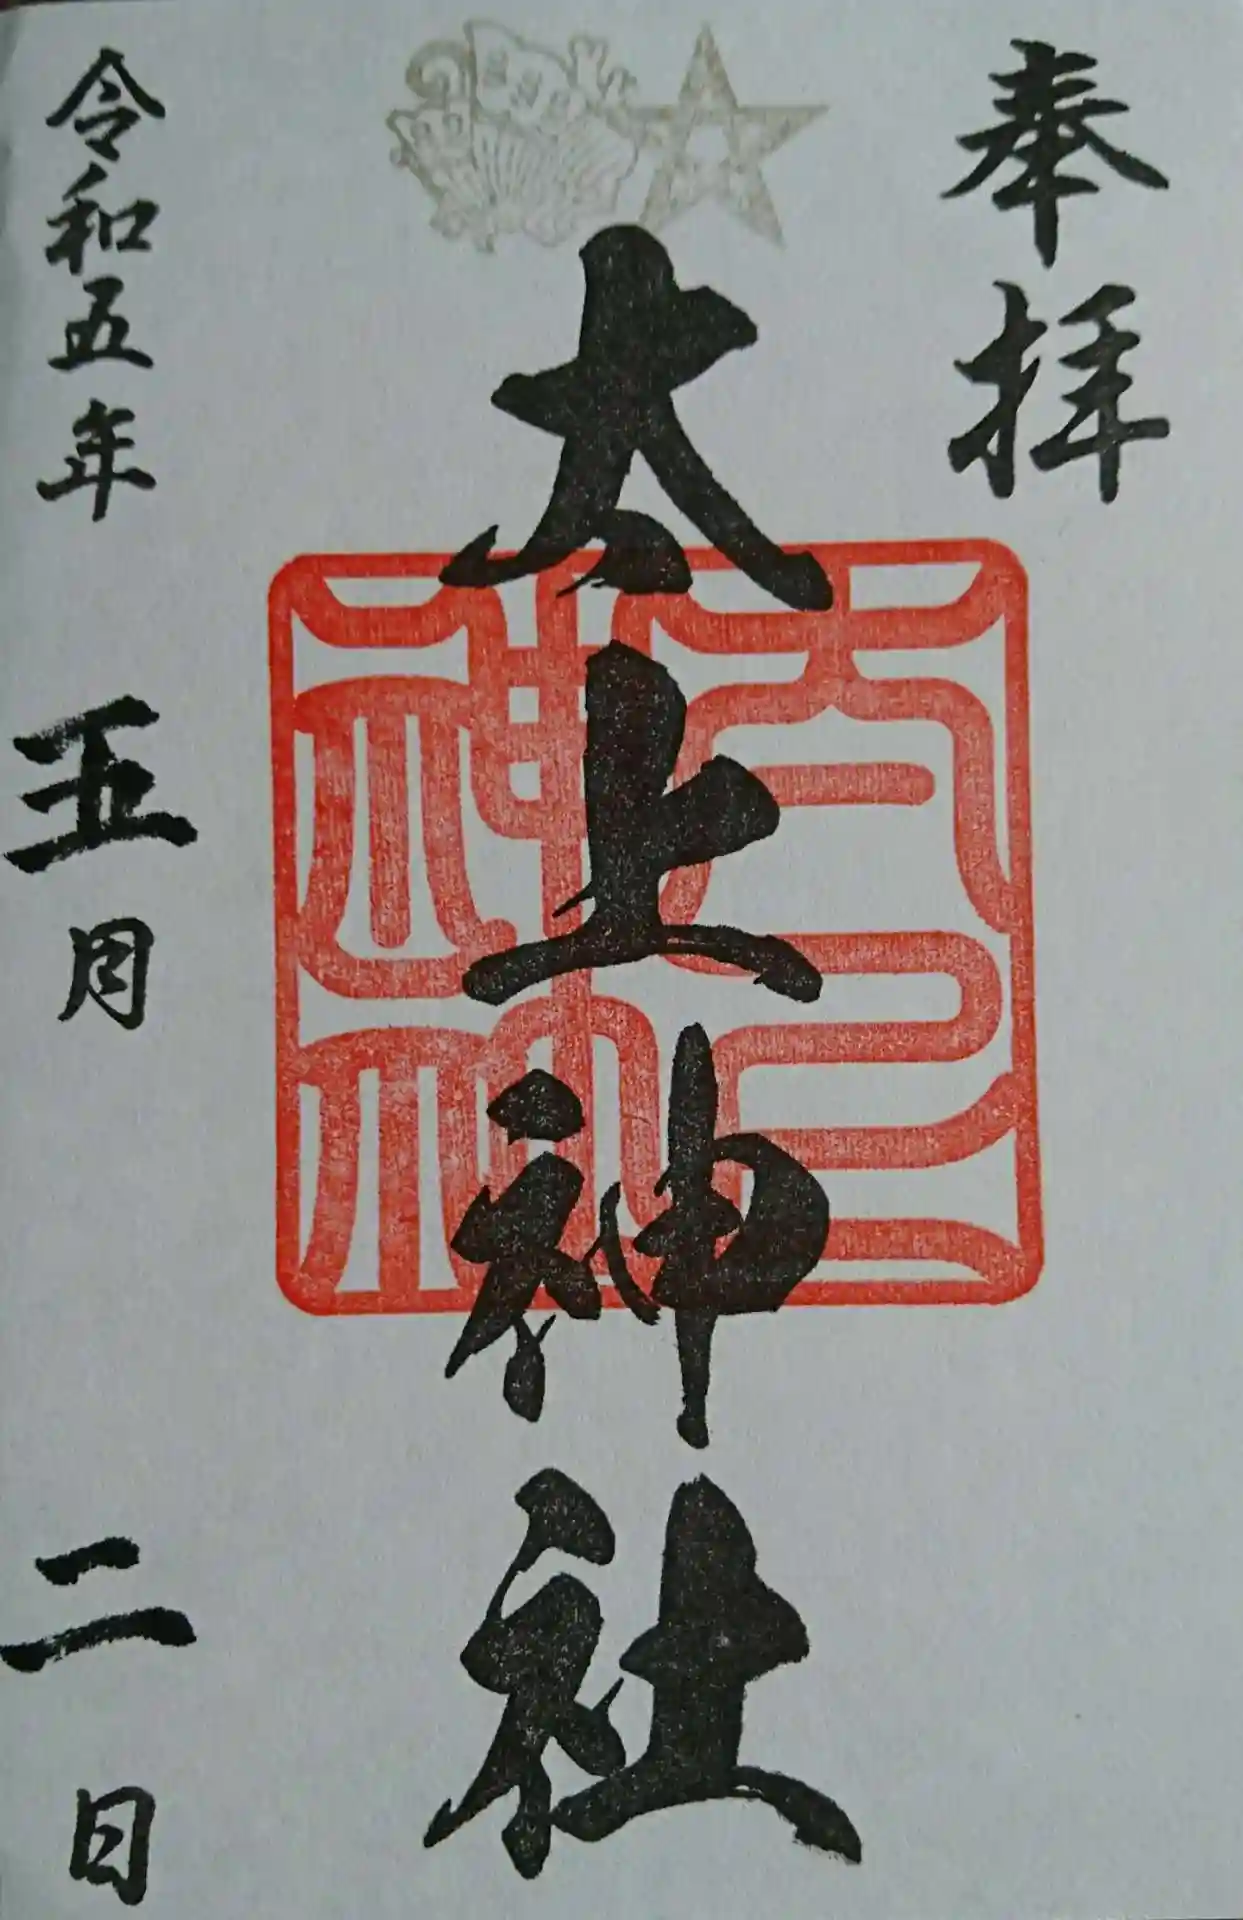 奉拝
太上神社
太上
神社
令和五年 五月 二日